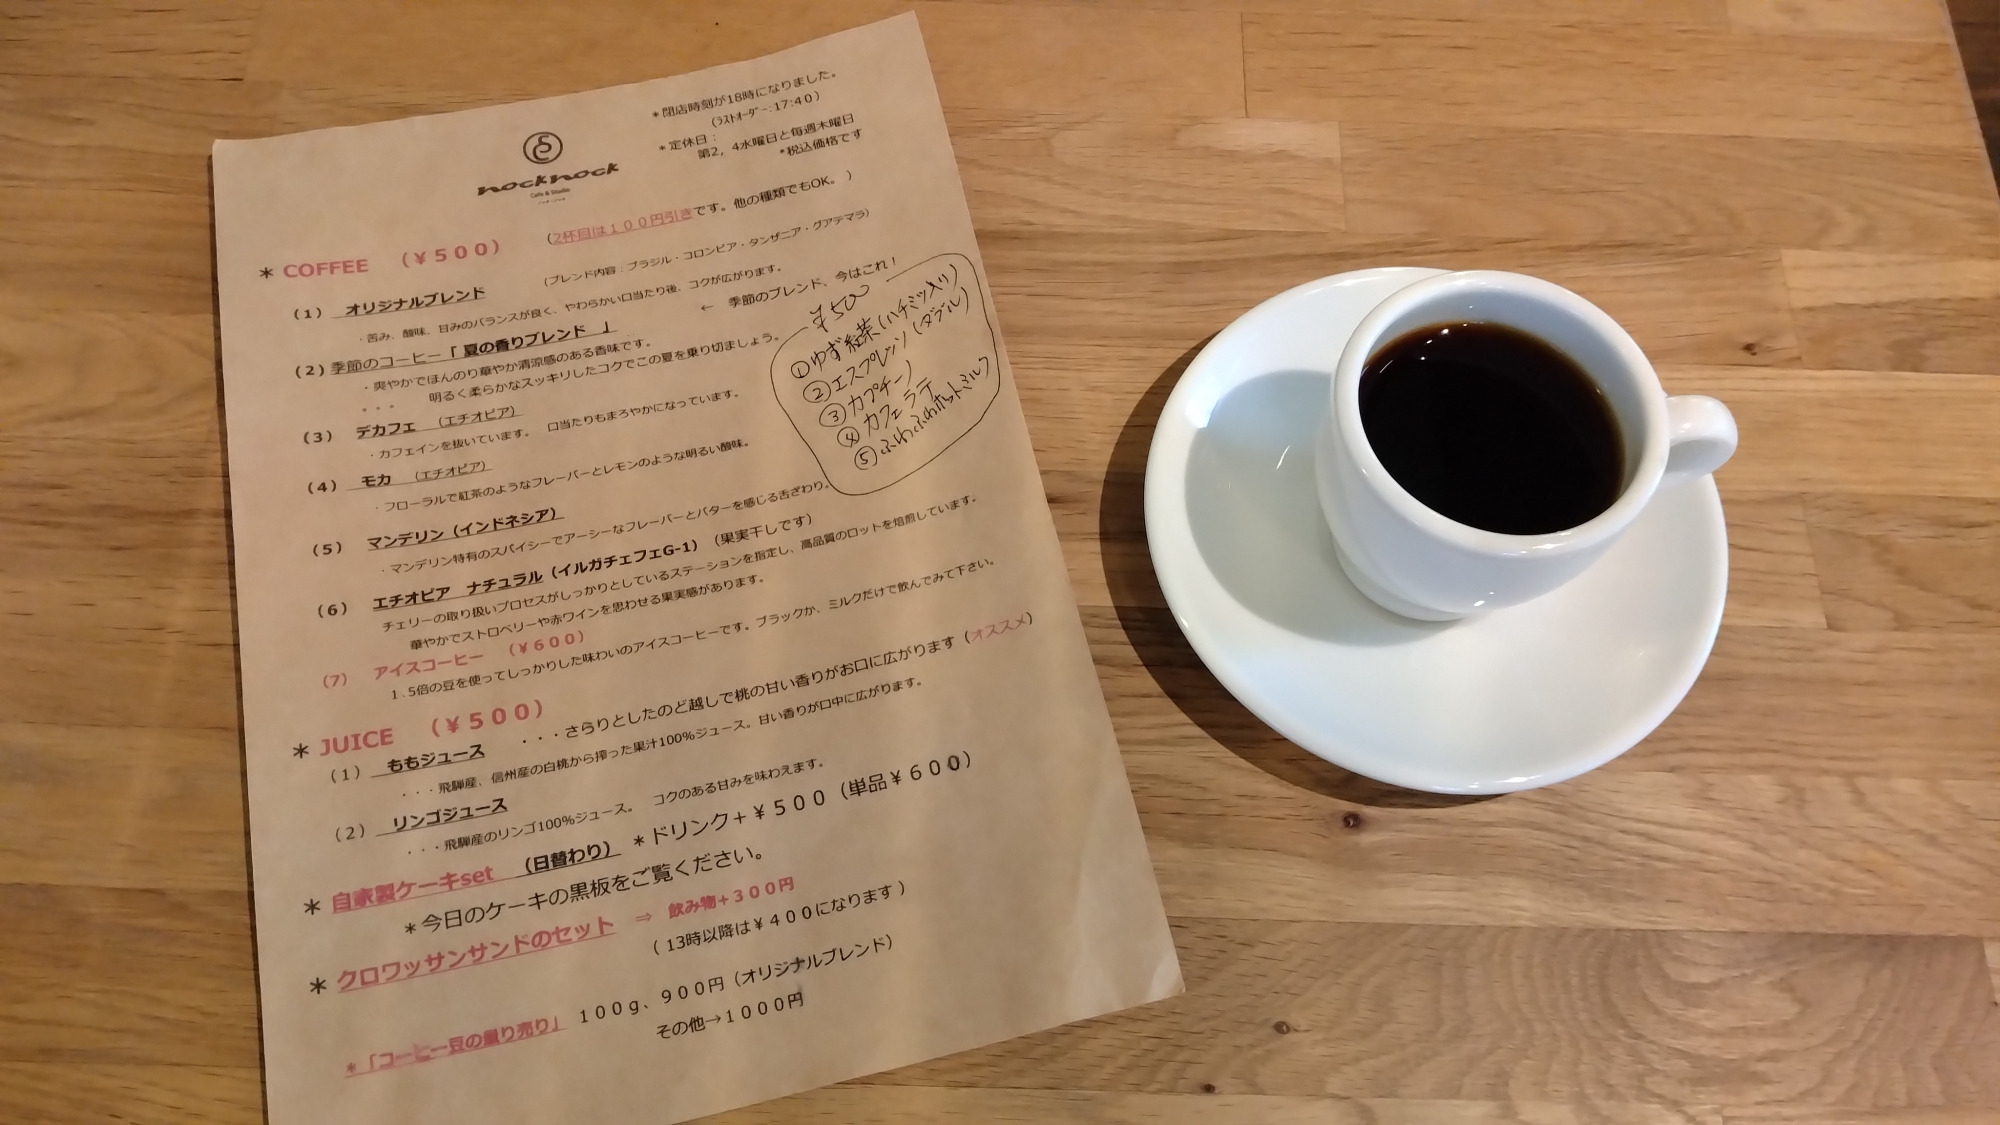 *閉店時刻が18時になりました。
(ﾗｽﾄｵｰﾀﾞｰ:17:40)
*定休日:
第2, 4水曜日と毎週木曜日
*税込価格です
nocknock
Cafe & Studio
* COFFEE (¥500) (2杯目は100円引きです。他の種類でもOK。)
(1) オリジナルブレンド (ブレンド内容:ブラジル・コロンビア・タンザニア・グアテマラ)
・苦み、酸味、甘みのバランスが良く、やわらかい口当たり後、コクが広がります。
(2)季節のコーヒー「夏の香りブレンド 」 ← 季節のブレンド、今はこれ!
・爽やかでほんのり華やか清涼感のある香味です。
・・・ 明るく柔らかなスッキリしたコクでこの夏を乗り切ましょう。
(3) デカフェ (エチオピア)
・カフェインを抜いています。 口当たりもまろやかになっています。
(4) モカ (エチオピア)
・フローラルで紅茶のようなフレーバーとレモンのような明るい酸味。
(5) マンデリン(インドネシア)
・マンデリン特有のスパイシーでアーシーなフレーバーとバターを感じる舌ざわり。
(6) エチオピア ナチュラル(イルガチェフェG-1) (果実干しです)
チェリーの取り扱いプロセスがしっかりとしているステーションを指定し、高品質のロットを焙煎しています。
華やかでストロベリーや赤ワインを思わせる果実感があります。
(7) アイスコーヒー (¥600)
1.5倍の豆を使ってしっかりした味わいのアイスコーヒーです。ブラックか、ミルクだけで飲んでみて下さい。
¥500
①ゆず紅茶(ハチミツ入り)
②エスプレッソ(ダブル)
③カプチーノ
④カフェラテ
⑤ふわふわホットミルク
* JUICE (¥500)
(1) ももジュース ・・・さらりとしたのど越しで桃の甘い香りがお口に広がります(オススメ)
・・・飛騨産、信州産の白桃から搾った果汁100%ジュース。甘い香りが口中に広がります。
(2) リンゴジュース
・・・飛騨産のリンゴ100%ジュース。 コクのある甘みを味わえます。
* 自家製ケーキset (日替わり) *ドリンク+¥500(単品¥600)
*今日のケーキの黒板をご覧ください。
* クロワッサンサンドのセット ⇒ 飲み物+300円
(13時以降は¥400になります)
*「コーヒー豆の量り売り」 100g、900円(オリジナルブレンド)
その他→1000円